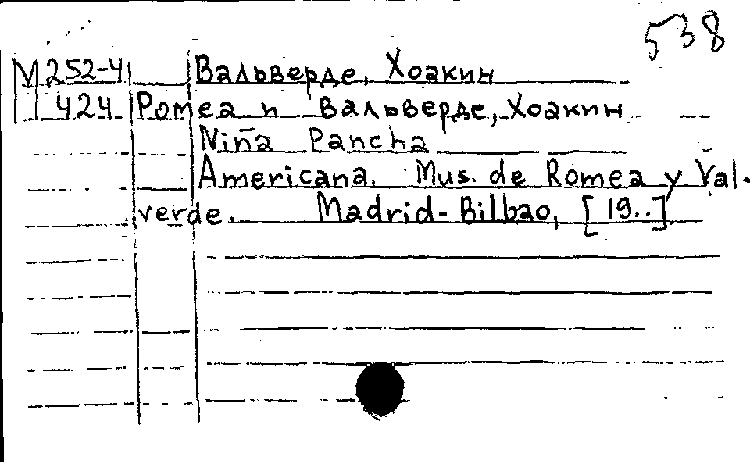 538
М 252-4 Вальверде, Хоакин
424 Ромеа и Вальверде, Хоакин
Niña Pancha
Americana. Mus. de Romea y Val-
verde. Madrid-Bilbao, [19..]